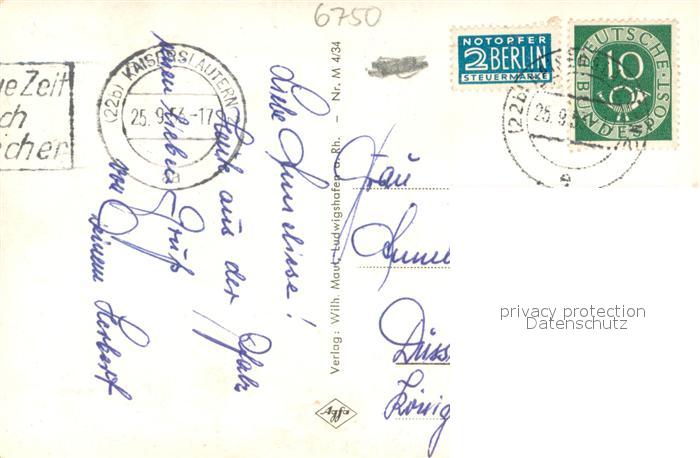 6750
ue Zeit
ch
cher
(22b) KAISERSLAUTERN
25.9.53-17
NOTOPFER
2 BERLIN
STEUERMARKE
DEUTSCHE
10
BUNDESPOST
(22b)
25.9.5
Liebe Anneliese!
Heute aus der Pfalz
einen lieben Gruß
von Deinem Herbert
Verlag: Wilh. Maut, Ludwigshafen a. Rh. – Nr. M 4/34
Agfa
Frau
Anne
Düss
König
privacy protection
Datenschutz